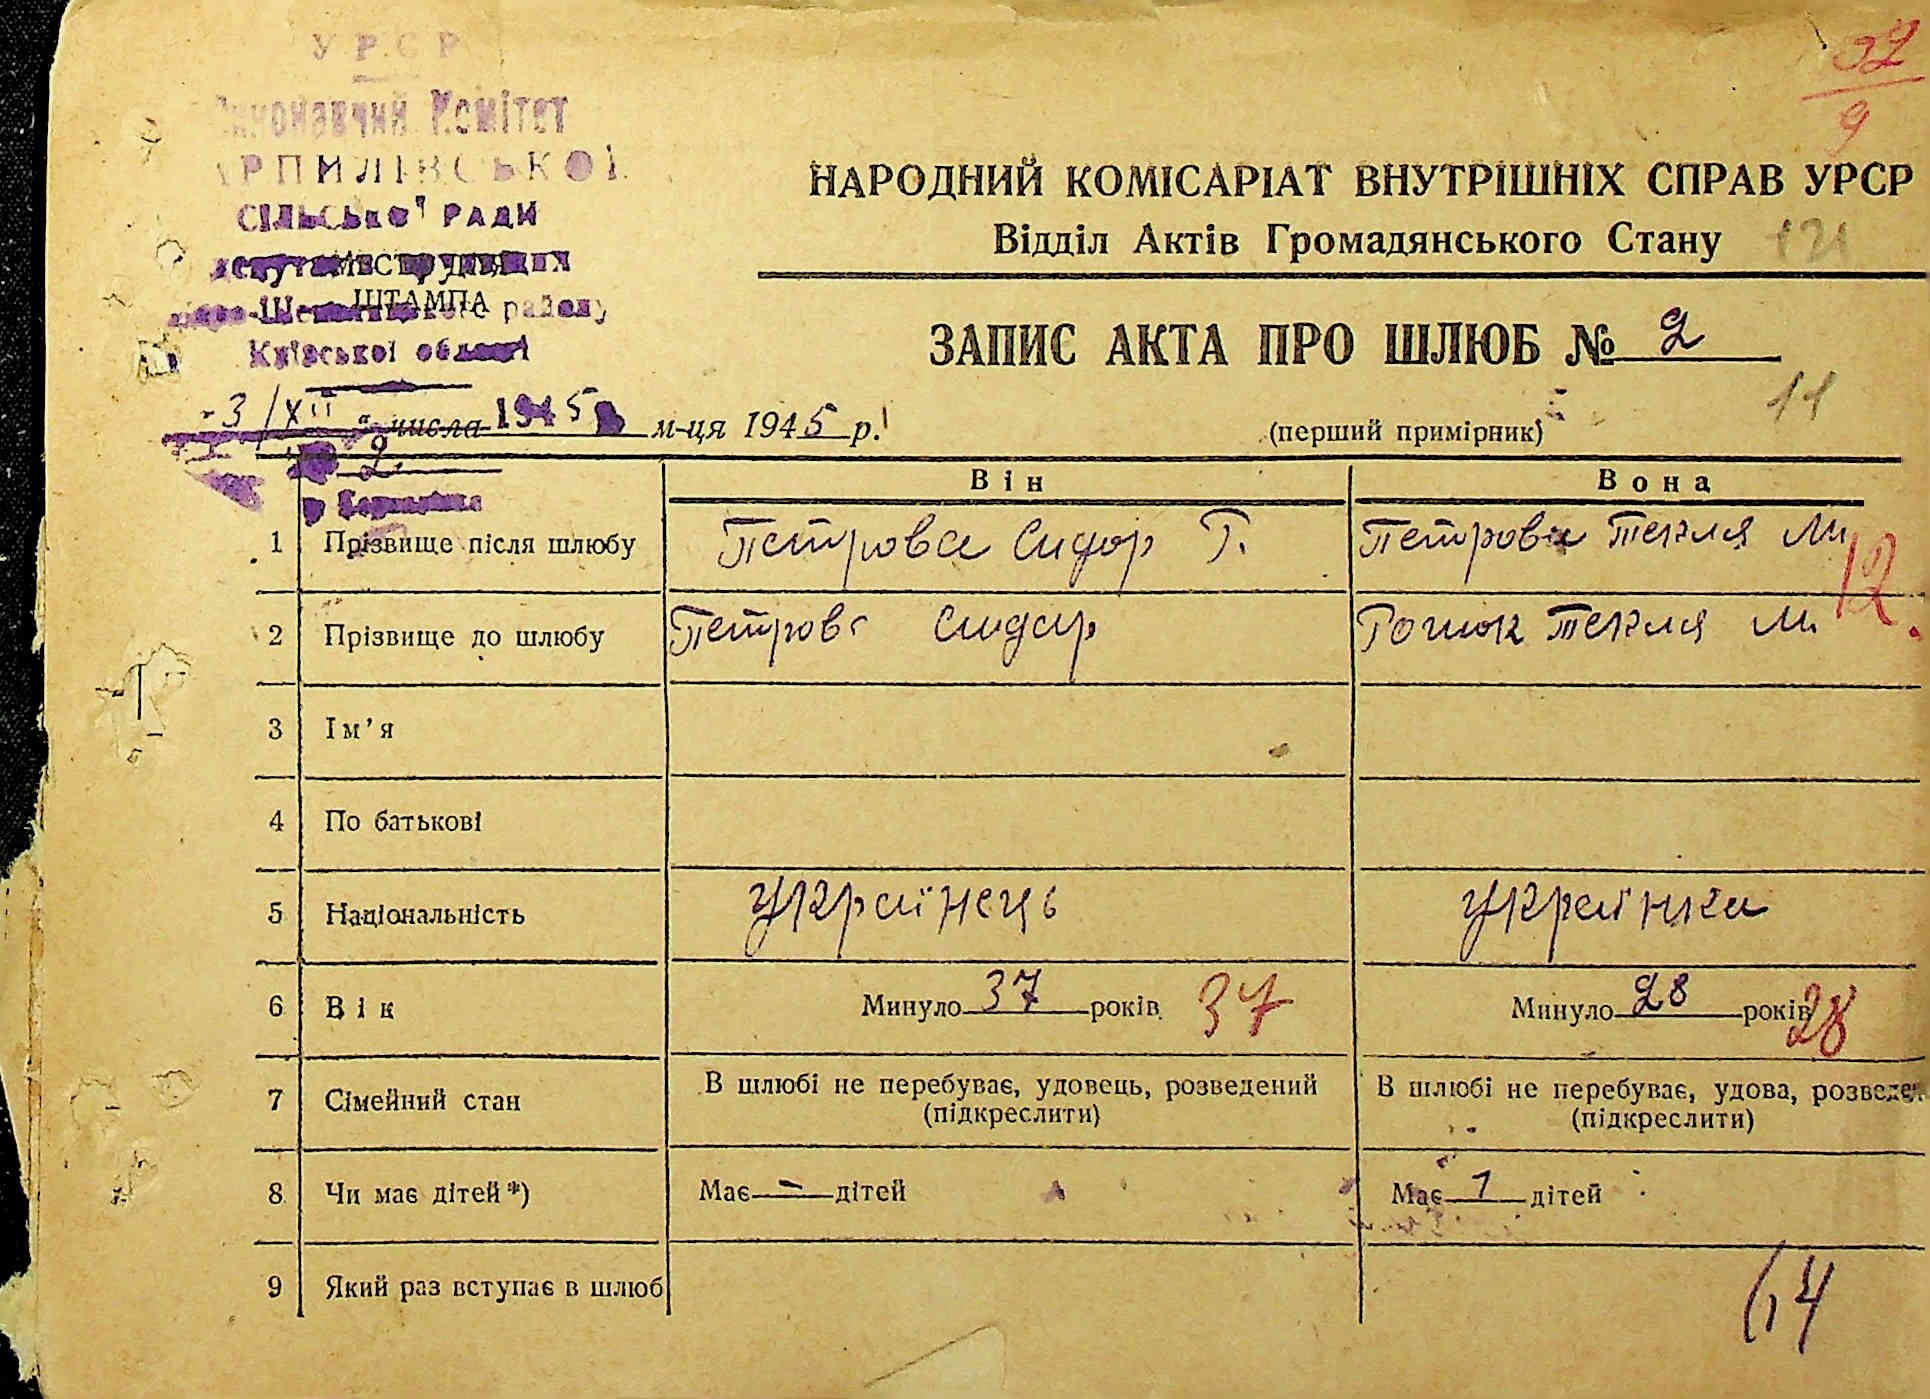 УРСР
Виконавчий Комітет
АРПИЛІВСЬКОЇ
СІЛЬСЬКОЇ РАДИ
депутатів трудящих
МІСЦЕ ДЛЯ
ШТАМПА
району
Київської області
3/XII 1945
числа м-ця 1945 р.
2
37
9
НАРОДНИЙ КОМІСАРІАТ ВНУТРІШНІХ СПРАВ УРСР
Відділ Актів Громадянського Стану 121
ЗАПИС АКТА ПРО ШЛЮБ № 2
(перший примірник) 11
Він Вона
1 Прізвище після шлюбу Петрова Сидор Г. Петрова Текля М.
12.
2 Прізвище до шлюбу Петрова Сидор Текля М.
3 Ім'я
4 По батькові
5 Національність українець українка
6 Вік Минуло 37 років 37 Минуло 28 років 28
7 Сімейний стан В шлюбі не перебуває, удовець, розведений В шлюбі не перебуває, удова, розведе
(підкреслити) (підкреслити)
8 Чи має дітей*) Має - дітей Має 1 дітей
9 Який раз вступає в шлюб
14